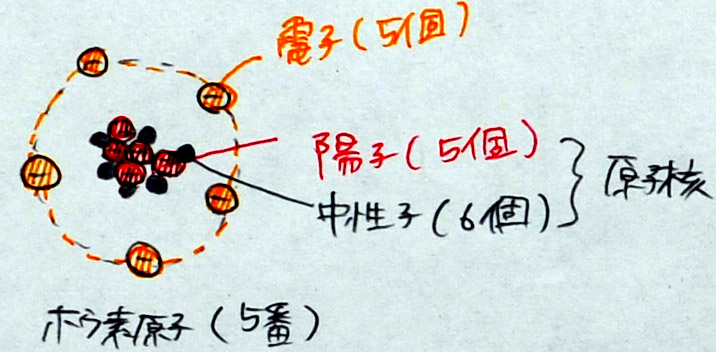 電子(5個)
陽子(5個)
中性子(6個)
原子核
ホウ素原子(5番)